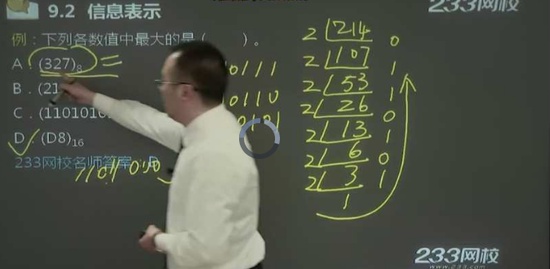 9.2 信息表示
233网校
例：下列各数值中最大的是（　）。
A．(327)8 =
B．(21
C．(1101010
D．(D8)16
233网校名师答案：D
11011000
0111
0110
0101
2 214 0
2 107 1
2 53 1
2 26 0
2 13 1
2 6 0
2 3 1
1
233网校
www.233.com